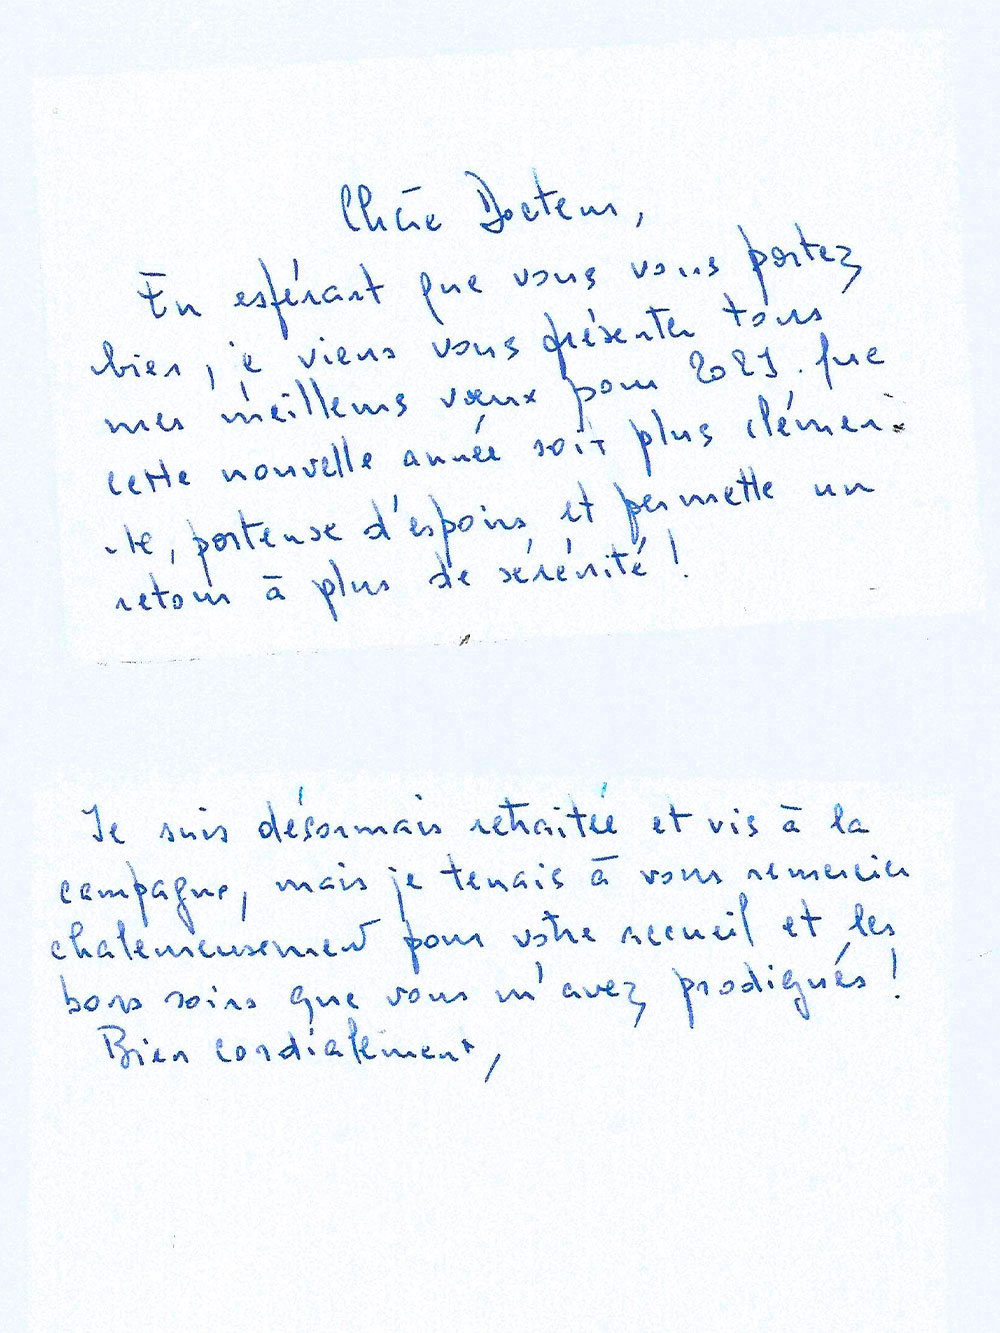 Chère Docteur,
En espérant que vous vous portez
bien, je viens vous présenter tous
mes meilleurs vœux pour 2021. Que
cette nouvelle année soit plus clémen-
-te, porteuse d'espoirs et permette un
retour à plus de sérénité !
Je suis désormais retraitée et vis à la
campagne, mais je tenais à vous remercier
chaleureusement pour votre accueil et les
bons soins que vous m'avez prodigués !
Bien cordialement,